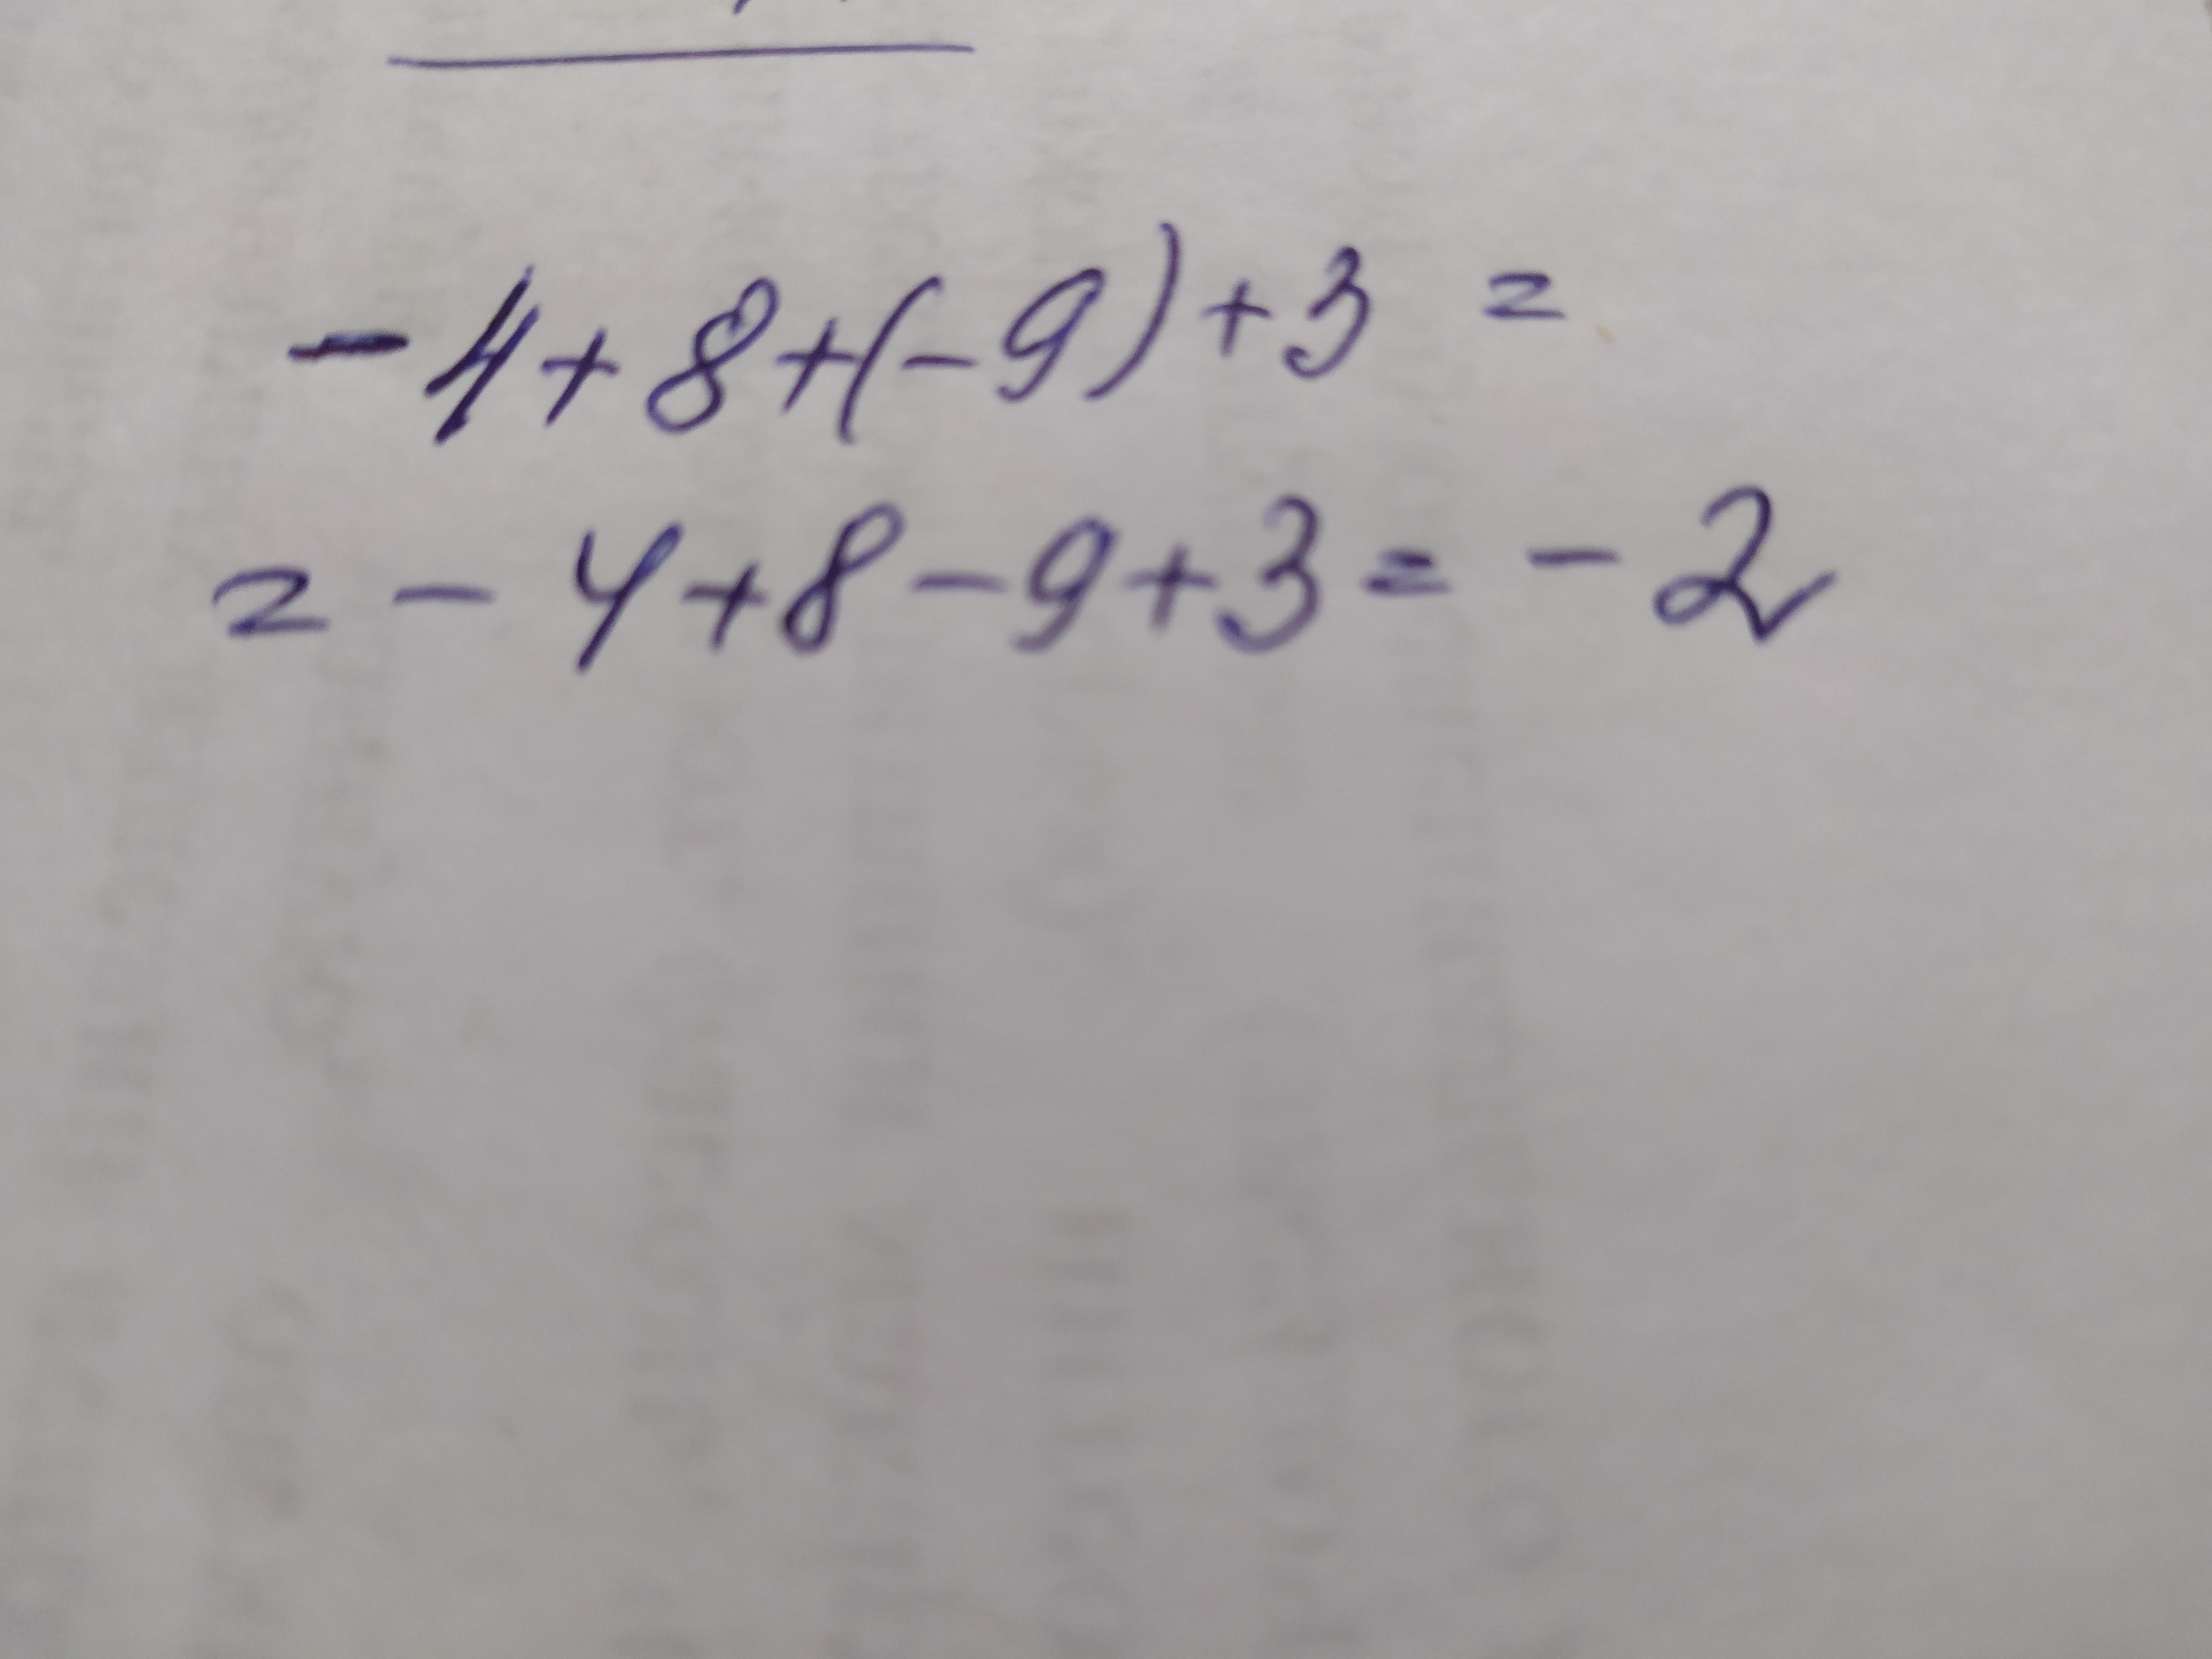 -4+8+(-9)+3 =
= -4+8-9+3 = -2